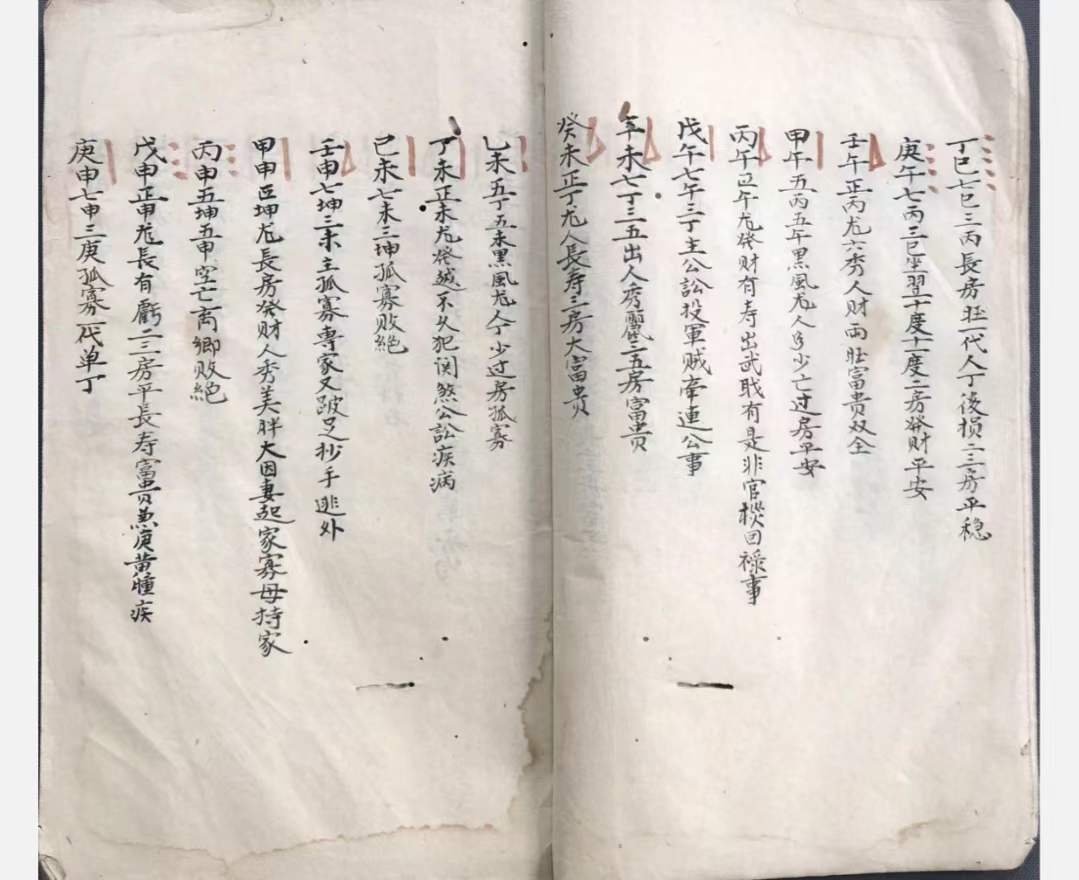 丁巳七巳三丙長房旺一代人丁後損二三房平稳
庚午七丙三巳坐翌十度十一度二房發财平安
壬午正丙龙六秀人财両旺富贵双全
甲午五丙五午黑風龙人丁少亡过房平安
丙午正午龙發财有寿出武戝有是非官回祿事
戊午七午三丁主公訟投軍贼牽連公事
辛未七丁三五出人秀麗三五房富贵
癸未正丁龙人長寿三房大富贵
乙未五丁五未黑風龙人丁少过房孤寡
丁未正未龙發越不久犯関煞公訟疾病
己未七未三坤孤寡败絕
壬申七坤三未主孤寡専家又跛足抄手逃外
甲申正坤龙長房發财人秀美胖大因妻起家寡母持家
丙申五坤五申空亡离鄉败絕
戊申正申龙長有虧二三房平長寿富贵兼庚黄腫疾
庚申七申三庚孤寡一代单丁